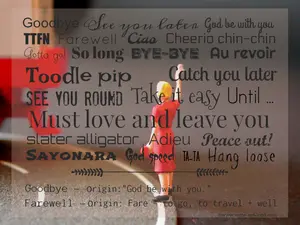 Goodbye See you later God be with you
TTFN Farewell Ciao Cheerio chin-chin
Gotta go! So long BYE-BYE Au revoir
Toodle pip Catch you later
SEE YOU ROUND Take it easy Until ...
Must love and leave you
slater alligator Adieu Peace out!
Sayonara God speed TA-TA Hang loose
Goodbye – Origin:"God be with you."
Farewell – Origin: Fare = to go, to travel + well